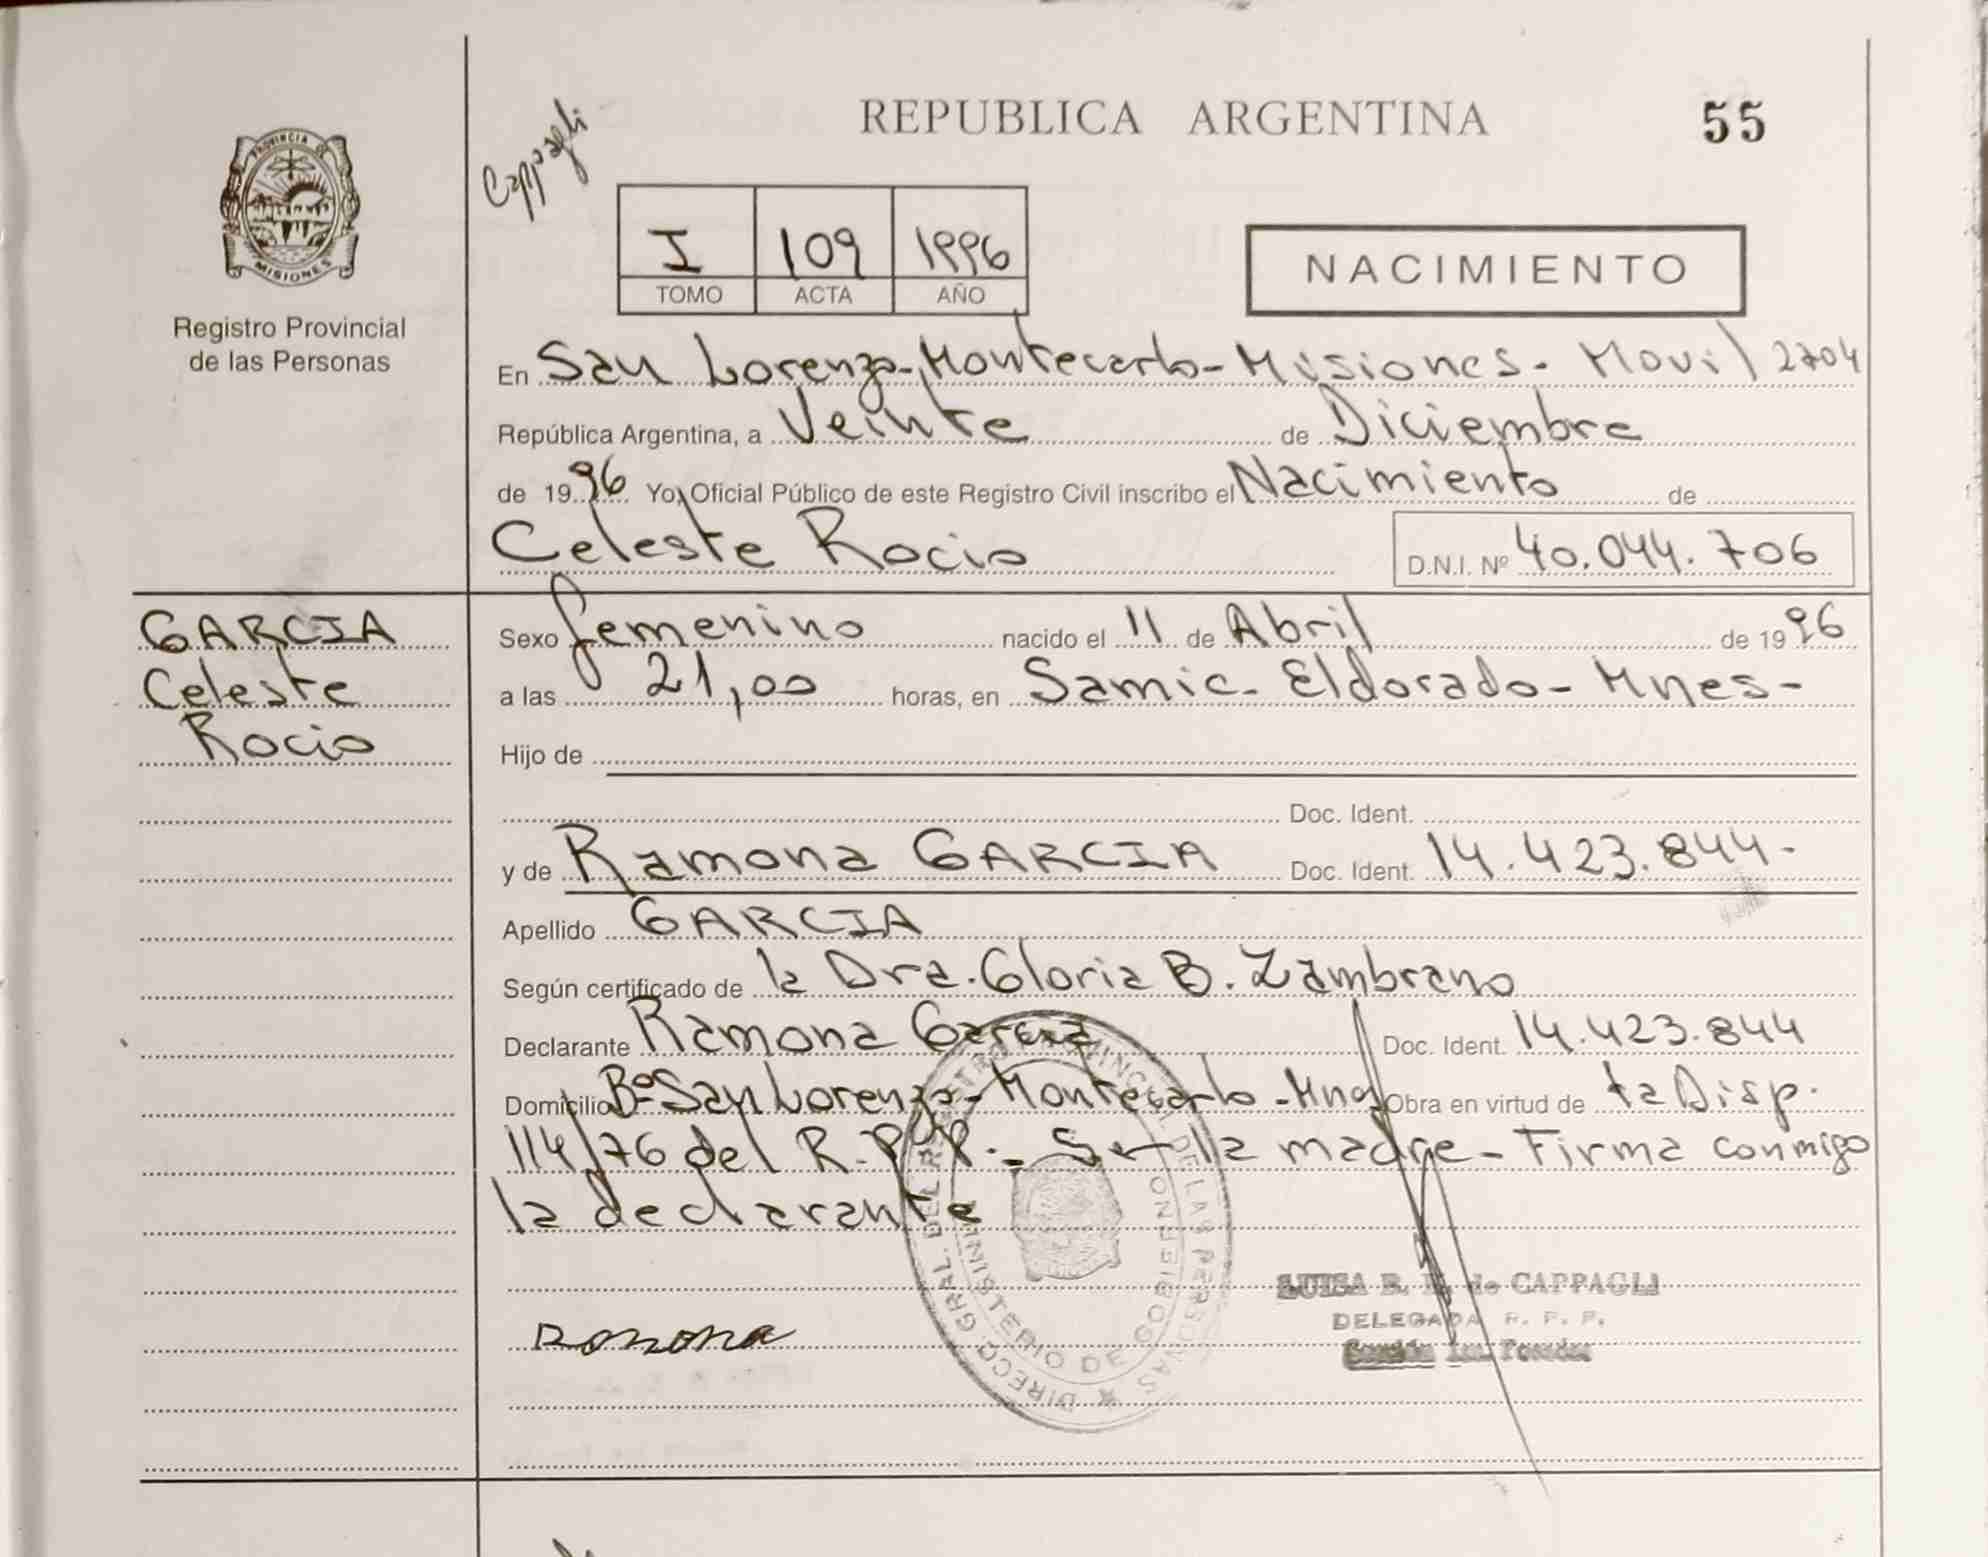 REPUBLICA ARGENTINA
55
Cappagli
PROVINCIA DE
MISIONES
Registro Provincial
de las Personas
I 109 1996
TOMO ACTA AÑO
NACIMIENTO
En San Lorenzo-Montecarlo-Misiones- Movil 2704
República Argentina, a Veinte de Diciembre
de 1996 Yo, Oficial Público de este Registro Civil inscribo el Nacimiento de
Celeste Rocio
D.N.I. Nº 40.044.706
GARCIA
Celeste
Rocio
Sexo femenino nacido el 11 de Abril de 1996
a las 21,00 horas, en Samic- Eldorado- Mnes-
Hijo de
Doc. Ident.
y de Ramona GARCIA Doc. Ident. 14.423.844-
Apellido GARCIA
Según certificado de la Dra. Gloria B. Zambrano
Declarante Ramona Garcia Doc. Ident. 14.423.844
Domicilio Bº San Lorenzo-Montecarlo-Mnes Obra en virtud de la Disp.
114/76 del R.P.P.- Ser la madre- Firma conmigo
la declarante
DIRECC. GRAL. DEL REGISTRO PROVINCIAL DE LAS PERSONAS
MINISTERIO DE GOBIERNO
LUISA B. de CAPPAGLI
DELEGADA R. P. P.
Ramona